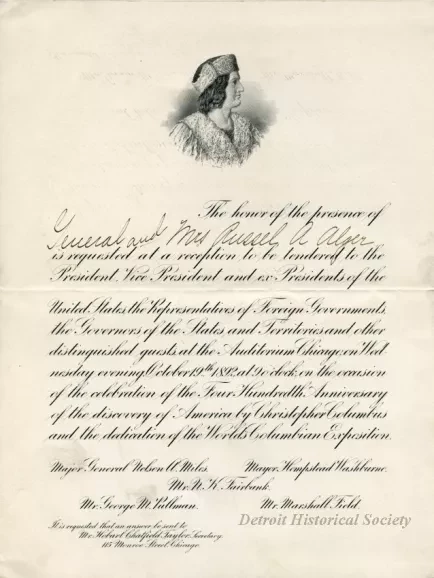 The honor of the presence of
General and Mrs Russel A Alger
is requested at a reception to be tendered to the
President, Vice President and ex-Presidents of the
United States, the Representatives of Foreign Governments,
the Governors of the States and Territories and other
distinguished guests, at the Auditorium, Chicago, on Wed-
nesday evening, October 19th 1892, at 9 o'clock, on the occasion
of the celebration of the Four Hundredth Anniversary
of the discovery of America by Christopher Columbus
and the dedication of the World's Columbian Exposition.
Major General Nelson A. Miles. Mayor Hempstead Washburne.
Mr. N. K. Fairbank.
Mr. George M. Pullman. Mr. Marshall Field.
It is requested that an answer be sent to
Mr. Hobart Chatfield-Taylor, Secretary.
115 Monroe Street, Chicago.
Detroit Historical Society